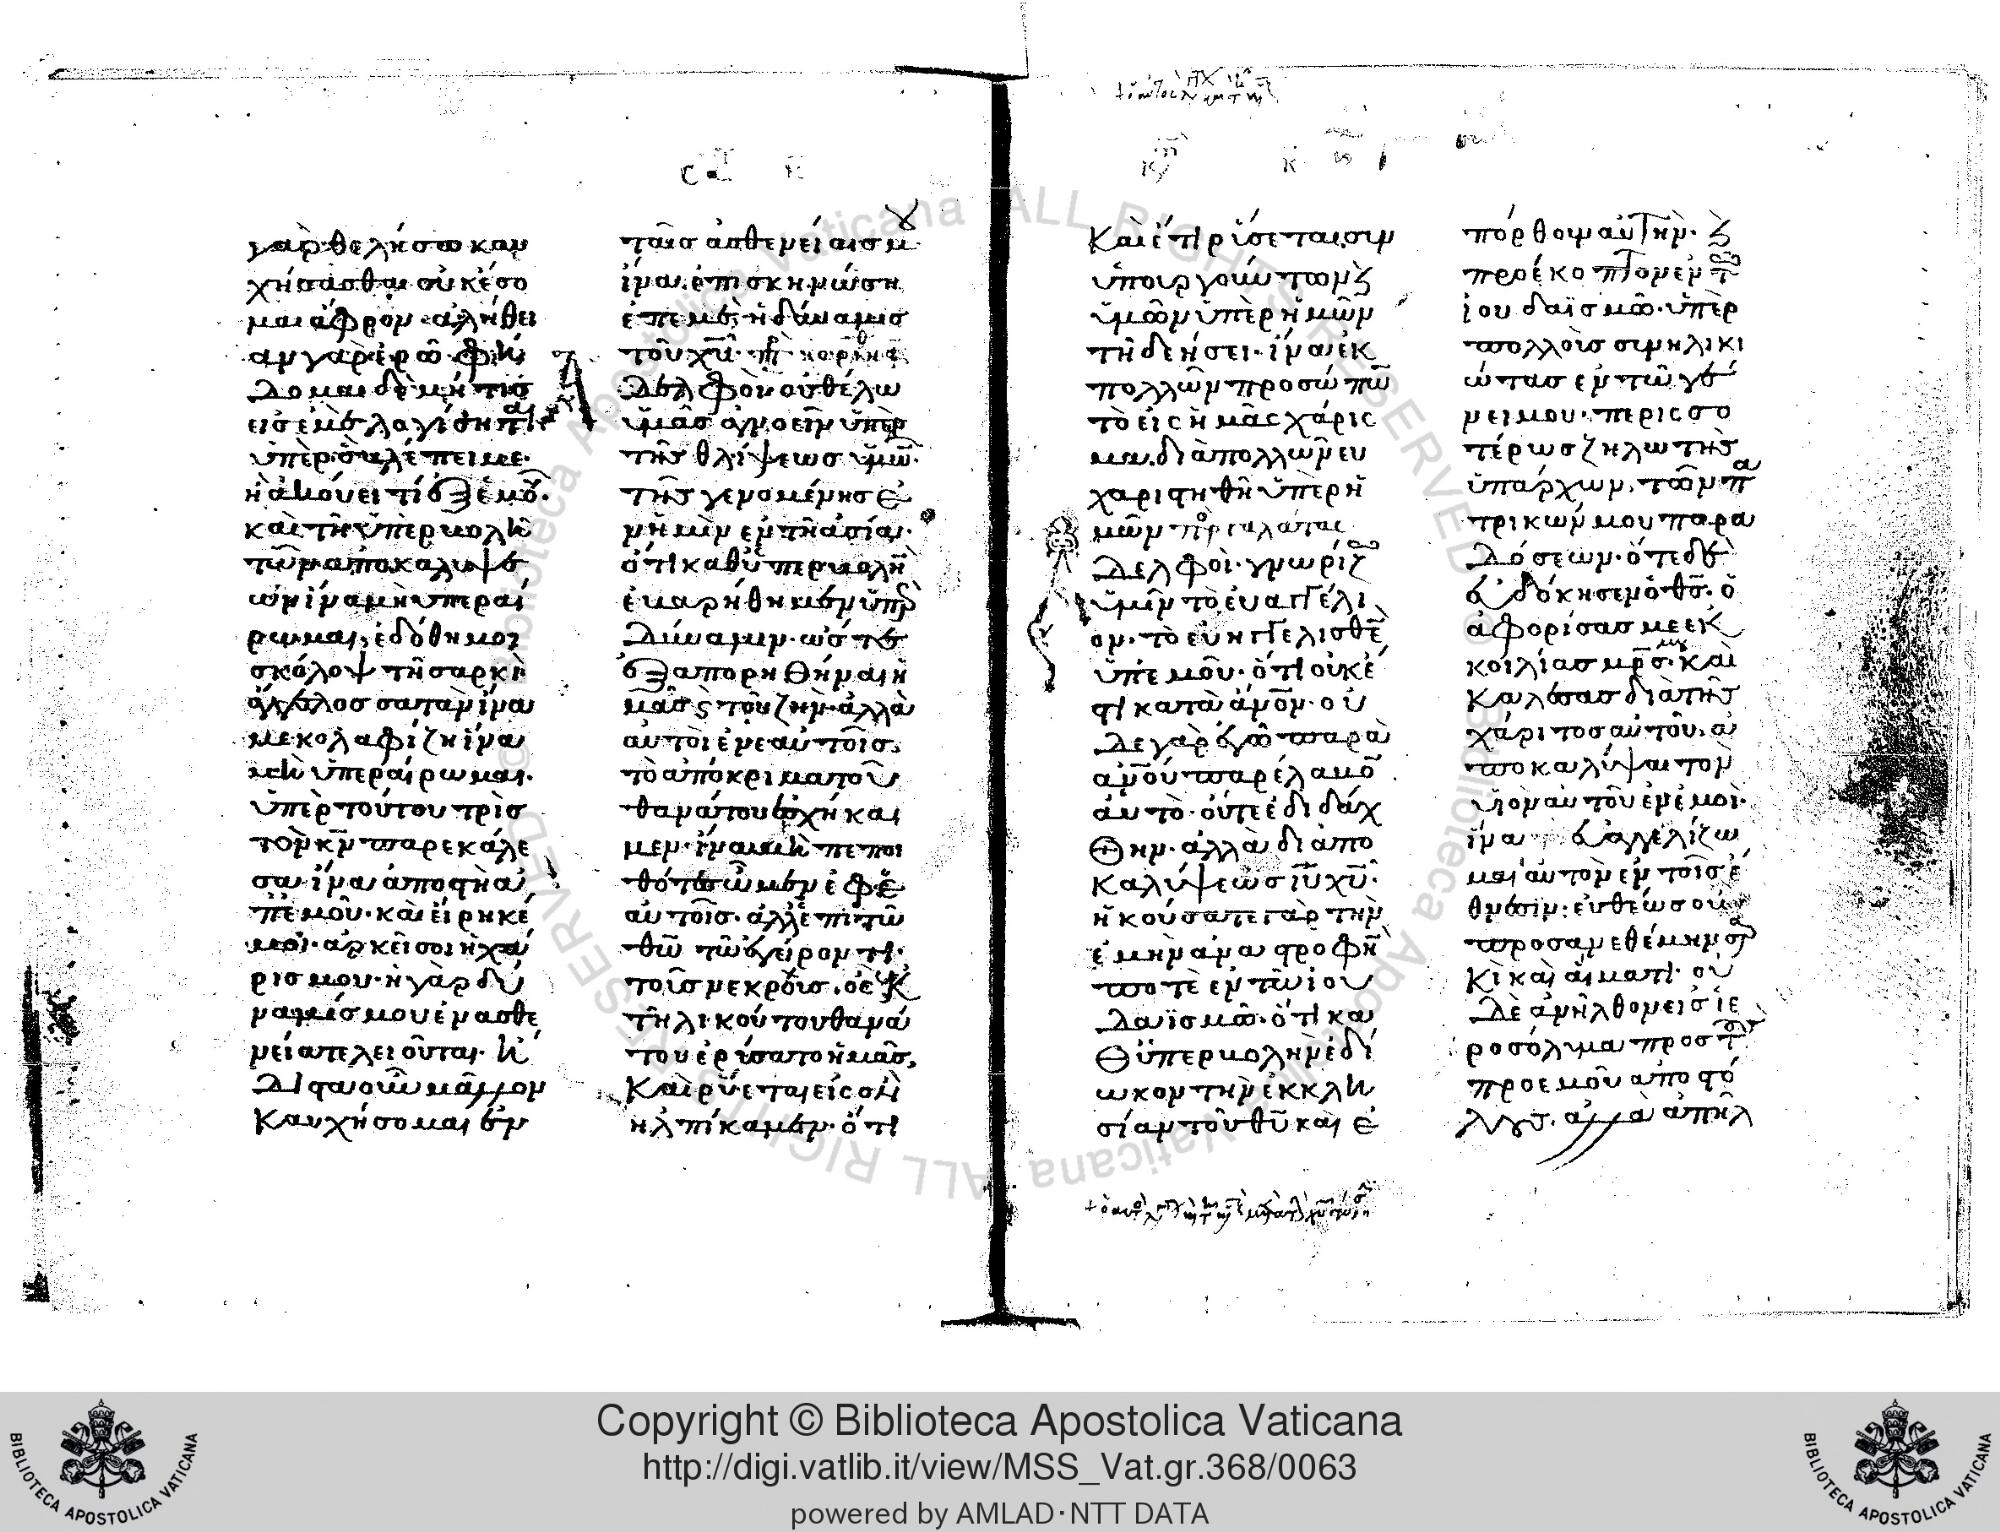 γὰρ θελήσω καυ
χήσασθαι οὐκ ἔσο
μαι ἄφρον· ἀλήθει
αν γὰρ ἐρῶ· φεί
δομαι δὲ μή τις
εἰς ἐμὲ λογίσηται
ὑπὲρ ὃ βλέπει με·
ἢ ἀκούει τί ἐξ ἐμοῦ·
καὶ τῇ ὑπερβολῇ
τῶν ἀποκαλύψε
ων ἵνα μὴ ὑπεραί
ρωμαι, ἐδόθη μοι
σκόλοψ τῇ σαρκὶ·
ἄγγελος σατὰν ἵνα
με κολαφίζη ἵνα
μὴ ὑπεραίρωμαι·
ὑπὲρ τούτου τρὶς
τὸν κν παρεκάλε
σα ἵνα ἀποστῆ ἀ
π' ἐμοῦ· καὶ εἴρηκέ
μοι· ἀρκεῖ σοι ἡ χά
ρις μου· ἡ γὰρ δύ
ναμίς μου ἐν ἀσθε
νεία τελειοῦται· ἥ
διστα οὖν μᾶλλον
καυχήσομαι ἐν
ταῖς ἀσθενείαις μου
ἵνα ἐπισκηνώση
ἐπ' ἐμὲ ἡ δύναμις
τοῦ χυ·
δελφοὶ οὐ θέλω
ὑμᾶς ἀγνοεῖν ὑπὲρ
τῆς θλίψεως ὑμῶν·
τῆς γενομένης ἐ
ν ἡμῖν ἐν τῇ ἀσία·
ὅτι καθ' ὑπερβολὴν
ἐβαρήθημεν ὑπὲρ
δύναμιν· ὥστε
ἐξαπορηθῆναι ἡ
μᾶς καὶ τοῦ ζῆν· ἀλλὰ
αὐτοὶ ἐν ἑαυτοῖς
τὸ ἀπόκριμα τοῦ
θανάτου ἐσχήκα
μεν· ἵνα μὴ πεποι
θότες ὦμεν ἐφ' ἑ
αυτοῖς· ἀλλ' ἐπὶ τῶ
θω τῶ ἐγείροντι
τοὺς νεκρούς· ὃς ἐκ
τηλικούτου θανά
του ἐρύσατο ἡμᾶς,
καὶ ῥύεται εἰς ὃν
ἠλπίκαμεν· ὅτι
καὶ ἔτι ῥύσεται, συν
υπουργούντων καὶ
ὑμῶν ὑπὲρ ἡμῶν
τῇ δεήσει· ἵνα ἐκ
πολλῶν προσώπων
τὸ εἰς ἡμᾶς χάρις
μα διὰ πολλῶν ευ
χαριστηθῆ ὑπὲρ ἡ
μῶν πρ γαλατας
δελφοὶ· γνωρίζω
ὑμῖν τὸ ἐυαγγέλι
ον· τὸ ἐυηγγελισθὲν
ὑπ' ἐμοῦ· ὅτι οὐκ ἔ
στι κατὰ ἄνον· οὐ
δὲ γὰρ ἐγὼ παρὰ
ἀνου παρέλαβον
ἀυτὸ· οὔτε ἐδιδάχ
θην· ἀλλὰ δι' ἀπο
καλύψεως ιυ χυ·
ἠκούσατε γὰρ τὴν
ἐμὴν ἀναστροφὴν
ποτὲ ἐν τῶ ἰου
δαϊσμῶ· ὅτι κα
θ' ὑπερβολὴν ἐδί
ωκον τὴν ἐκκλη
σίαν τοῦ θυ καὶ ἐ
πόρθουν αὐτὴν· καὶ
προέκοπτον ἐν τῶ
ἰουδαϊσμῶ· ὑπὲρ
πολλοὺς συνηλικι
ώτας ἐν τῶ γέ
νει μου· περισσο
τέρως ζηλωτὴς
ὑπάρχων, τῶν πα
τρικῶν μου παρα
δόσεων· ὅτε δὲ
εὐδόκησεν ὁ θς· ὁ
ἀφορίσας με ἐκ
κοιλίας μρς μου καὶ
καλέσας διὰ τῆς
χάριτος αὐτοῦ, ἀ
ποκαλύψαι τὸν
υἱὸν αὐτοῦ ἐν ἐμοὶ·
ἵνα εὐαγγελίζω
μαι αὐτὸν ἐν τοῖς ἔ
θνεσιν· ἐυθέως οὐ
προσανεθέμην σαρ
κὶ καὶ αἵματι· οὐ
δὲ ἀνῆλθον εἰς ἱε
ροσόλυμα πρὸς τοὺς
πρὸ ἐμοῦ ἀποστό
λους· ἀλλὰ ἀπῆλ
Copyright © Biblioteca Apostolica Vaticana
http://digi.vatlib.it/view/MSS_Vat.gr.368/0063
powered by AMLAD·NTT DATA
BIBLIOTECA APOSTOLICA VATICANA
BIBLIOTECA APOSTOLICA VATICANA